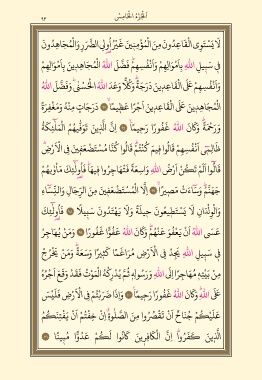 الجزء الخامس
٩٣
لَا يَسْتَوِي الْقَاعِدُونَ مِنَ الْمُؤْمِنِينَ غَيْرُ أُولِي الضَّرَرِ وَالْمُجَاهِدُونَ
فِي سَبِيلِ اللّٰهِ بِاَمْوَالِهِمْ وَاَنْفُسِهِمْ فَضَّلَ اللّٰهُ الْمُجَاهِدِينَ بِاَمْوَالِهِمْ
وَاَنْفُسِهِمْ عَلَى الْقَاعِدِينَ دَرَجَةً وَكُلًّا وَعَدَ اللّٰهُ الْحُسْنٰى وَفَضَّلَ اللّٰهُ
الْمُجَاهِدِينَ عَلَى الْقَاعِدِينَ اَجْرًا عَظِيمًا دَرَجَاتٍ مِنْهُ وَمَغْفِرَةً
وَرَحْمَةً وَكَانَ اللّٰهُ غَفُورًا رَحِيمًا اِنَّ الَّذِينَ تَوَفّٰيهُمُ الْمَلٰٓئِكَةُ
ظَالِمِٓي اَنْفُسِهِمْ قَالُوا فِيمَ كُنْتُمْ قَالُوا كُنَّا مُسْتَضْعَفِينَ فِي الْاَرْضِ
قَالُٓوا اَلَمْ تَكُنْ اَرْضُ اللّٰهِ وَاسِعَةً فَتُهَاجِرُوا فِيهَا فَاُولٰٓئِكَ مَاْوٰيهُمْ
جَهَنَّمُ وَسَٓاءَتْ مَصِيرًا اِلَّا الْمُسْتَضْعَفِينَ مِنَ الرِّجَالِ وَالنِّسَٓاءِ
وَالْوِلْدَانِ لَا يَسْتَطِيعُونَ حِيلَةً وَلَا يَهْتَدُونَ سَبِيلًا فَاُولٰٓئِكَ
عَسَى اللّٰهُ اَنْ يَعْفُوَ عَنْهُمْ وَكَانَ اللّٰهُ عَفُوًّا غَفُورًا وَمَنْ يُهَاجِرْ
فِي سَبِيلِ اللّٰهِ يَجِدْ فِي الْاَرْضِ مُرَاغَمًا كَثِيرًا وَسَعَةً وَمَنْ يَخْرُجْ
مِنْ بَيْتِهِ مُهَاجِرًا اِلَى اللّٰهِ وَرَسُولِهِ ثُمَّ يُدْرِكْهُ الْمَوْتُ فَقَدْ وَقَعَ اَجْرُهُ
عَلَى اللّٰهِ وَكَانَ اللّٰهُ غَفُورًا رَحِيمًا وَاِذَا ضَرَبْتُمْ فِي الْاَرْضِ فَلَيْسَ
عَلَيْكُمْ جُنَاحٌ اَنْ تَقْصُرُوا مِنَ الصَّلٰوةِ اِنْ خِفْتُمْ اَنْ يَفْتِنَكُمُ
الَّذِينَ كَفَرُوا اِنَّ الْكَافِرِينَ كَانُوا لَكُمْ عَدُوًّا مُبِينًا